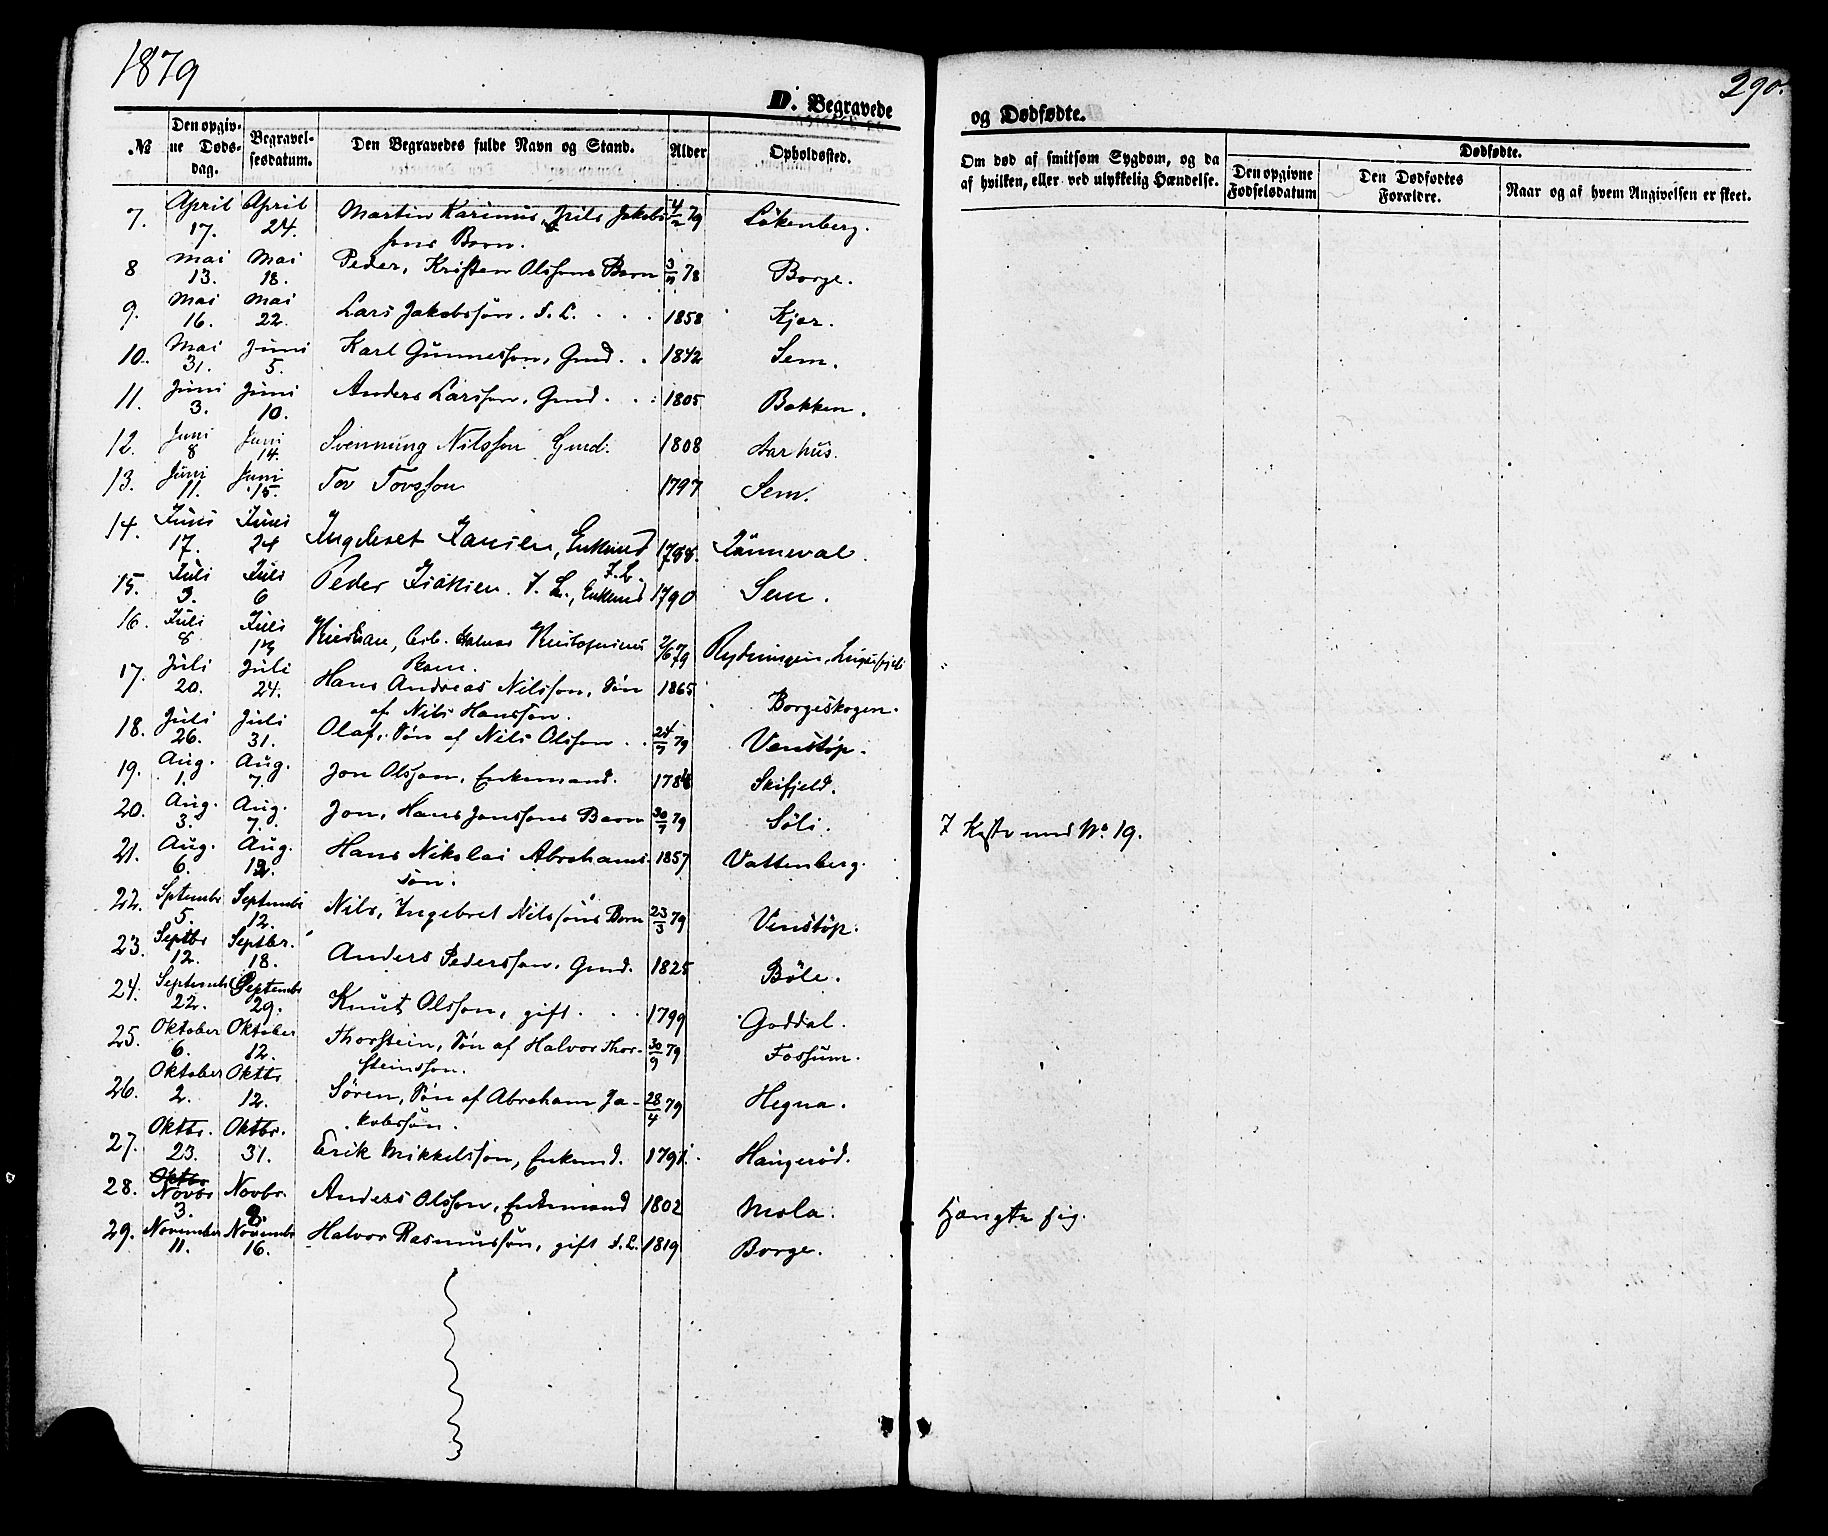 1879
290.
D. Begravede og Dødfødte.
№ Den opgivne Dødsdag. Begravelsesdatum. Den Begravedes fulde Navn og Stand. Alder Opholdssted. Om død af smitsom Sygdom, og da af hvilken, eller ved ulykkelig Hændelse. Dødfødte. Den opgivne Fødselsdatum Den Dødfødtes Forældre. Naar og af hvem Angivelsen er skeet.
7. April 17. April 24. Martin Karinius, Nils Jakobs- 4/2 79 Lökenberg.
søns Barn.
8 Mai 13. Mai 18. Peder, Kristen Olssons Barn 78 Borge.
9. Mai 16. Mai 22. Lars Jakobssøn. . . . 1858 Kjær.
10. Mai 31. Juni 5. Karl Gunnesson, Gmd. . 1842 Sem.
11. Juni 3. Juni 10. Anders Larsson, Gmd. . . 1805 Bakken.
12. Juni 8 Juni 14. Svennung Nilsson Gmd. 1808 Aarhus.
13. Juni 11. Juni 15. Tov Tovsson 1797 Sem.
14. Juni 17. Juni 24 Ingebret Hansen, Enkemd 1788.
15. Juli 3. Juli 6 Peder Isaksen. F. L., Enkemd 1790 Sem.
16. Juli 8 Juli 13 Kristian, Arb. Halvor Kristofersens 79
Barn.
17. Juli 20. Juli 24. Hans Andreas Nilsson, Søn 1865 Borgeskogen.
af Nils Hansson.
18. Juli 26. Juli 31. Olaf, Søn af Nils Olsson . . 24/7 79 Venstøp.
19. Aug. 1. Aug. 7. Jon Olsson, Enkemand. Skifjeld.
20. Aug. 3. Aug. 7. Jon, Hans Jonssons Barn 30/7 79 Söli. I Kiste med No 19.
21. Aug. 6. Aug. 12. Hans Nikolai Abrahams- 1857 Vattenberg.
søn.
22. Septembr 5. Septembr 12. Nils, Ingebret Nilssøns Barn 23/3 79 Venstøp.
23. Septbr 12. Septbr. 18. Anders Pedersson, Gmd. 1825 Böle.
24. Septembr 22. Septembr 29. Knut Olsson, gift. . . 1799 Goddal.
25. Oktober 6. Oktober 12. Thorstein, Søn af Halvor Thor- 30/9 79 Fossum.
steinsson.
26. Oktober 2. Oktbr 12. Sören, Søn af Abraham Ja- 28/4 79 Hegna.
kobssøn.
27. Oktbr. 23. Oktbr. 31. Erik Mikkelssøn, Enkemd. 1791. Haugerød.
28. Oktbr Novbr 3. Novbr. 8. Anders Olsson, Enkemand 1802 Mola. Hængte sig.
29. November 11. Novembr 16. Halvor Rasmussøn, gift S. L. 1819 Borge.